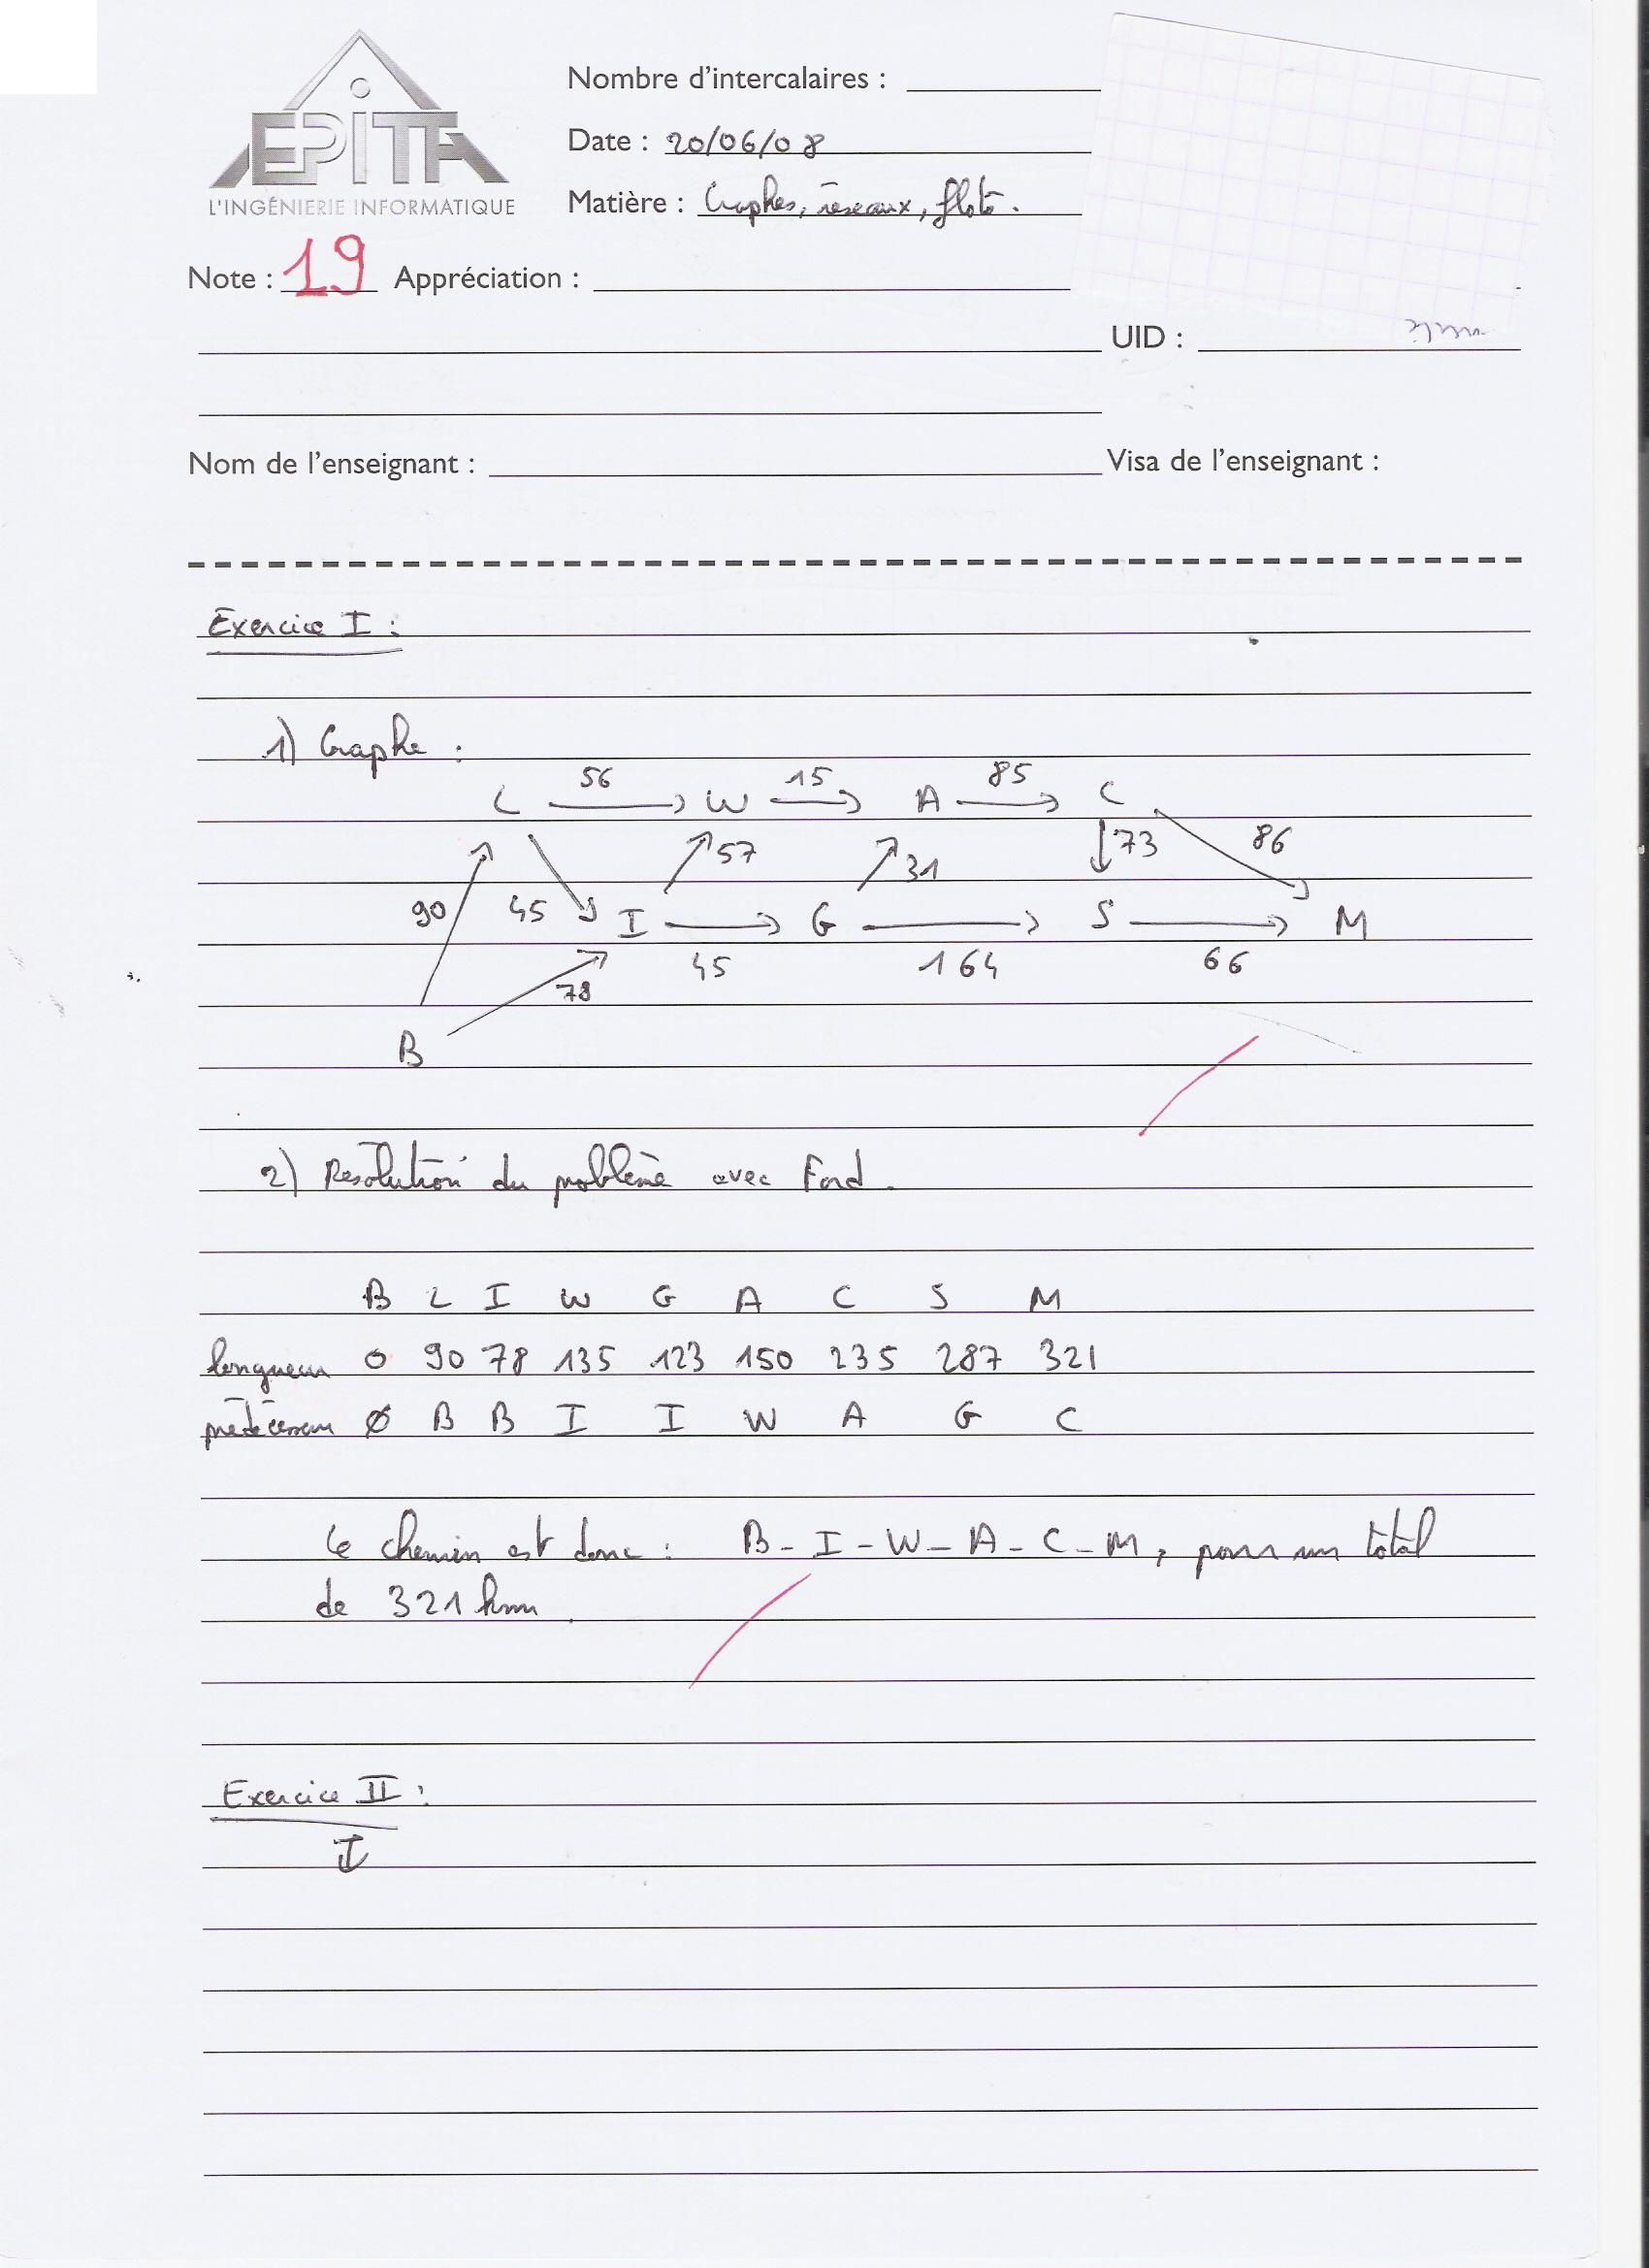 EPITA
L'INGÉNIERIE INFORMATIQUE
Nombre d'intercalaires :
Date : 20/06/08
Matière : Graphes, réseaux, flots.
Note : 19 Appréciation :
UID :
Nom de l'enseignant :
Visa de l'enseignant :
Exercice I :
1) Graphe :
56 15 85
L W A C
57 31 73 86
90 45 I G S M
78 45 164 66
B
2) Résolution du problème avec Ford.
B L I W G A C S M
longueur 0 90 78 135 123 150 235 287 321
prédécesseur Ø B B I I W A G C
Le chemin est donc : B - I - W - A - C - M, pour un total
de 321 km.
Exercice II :